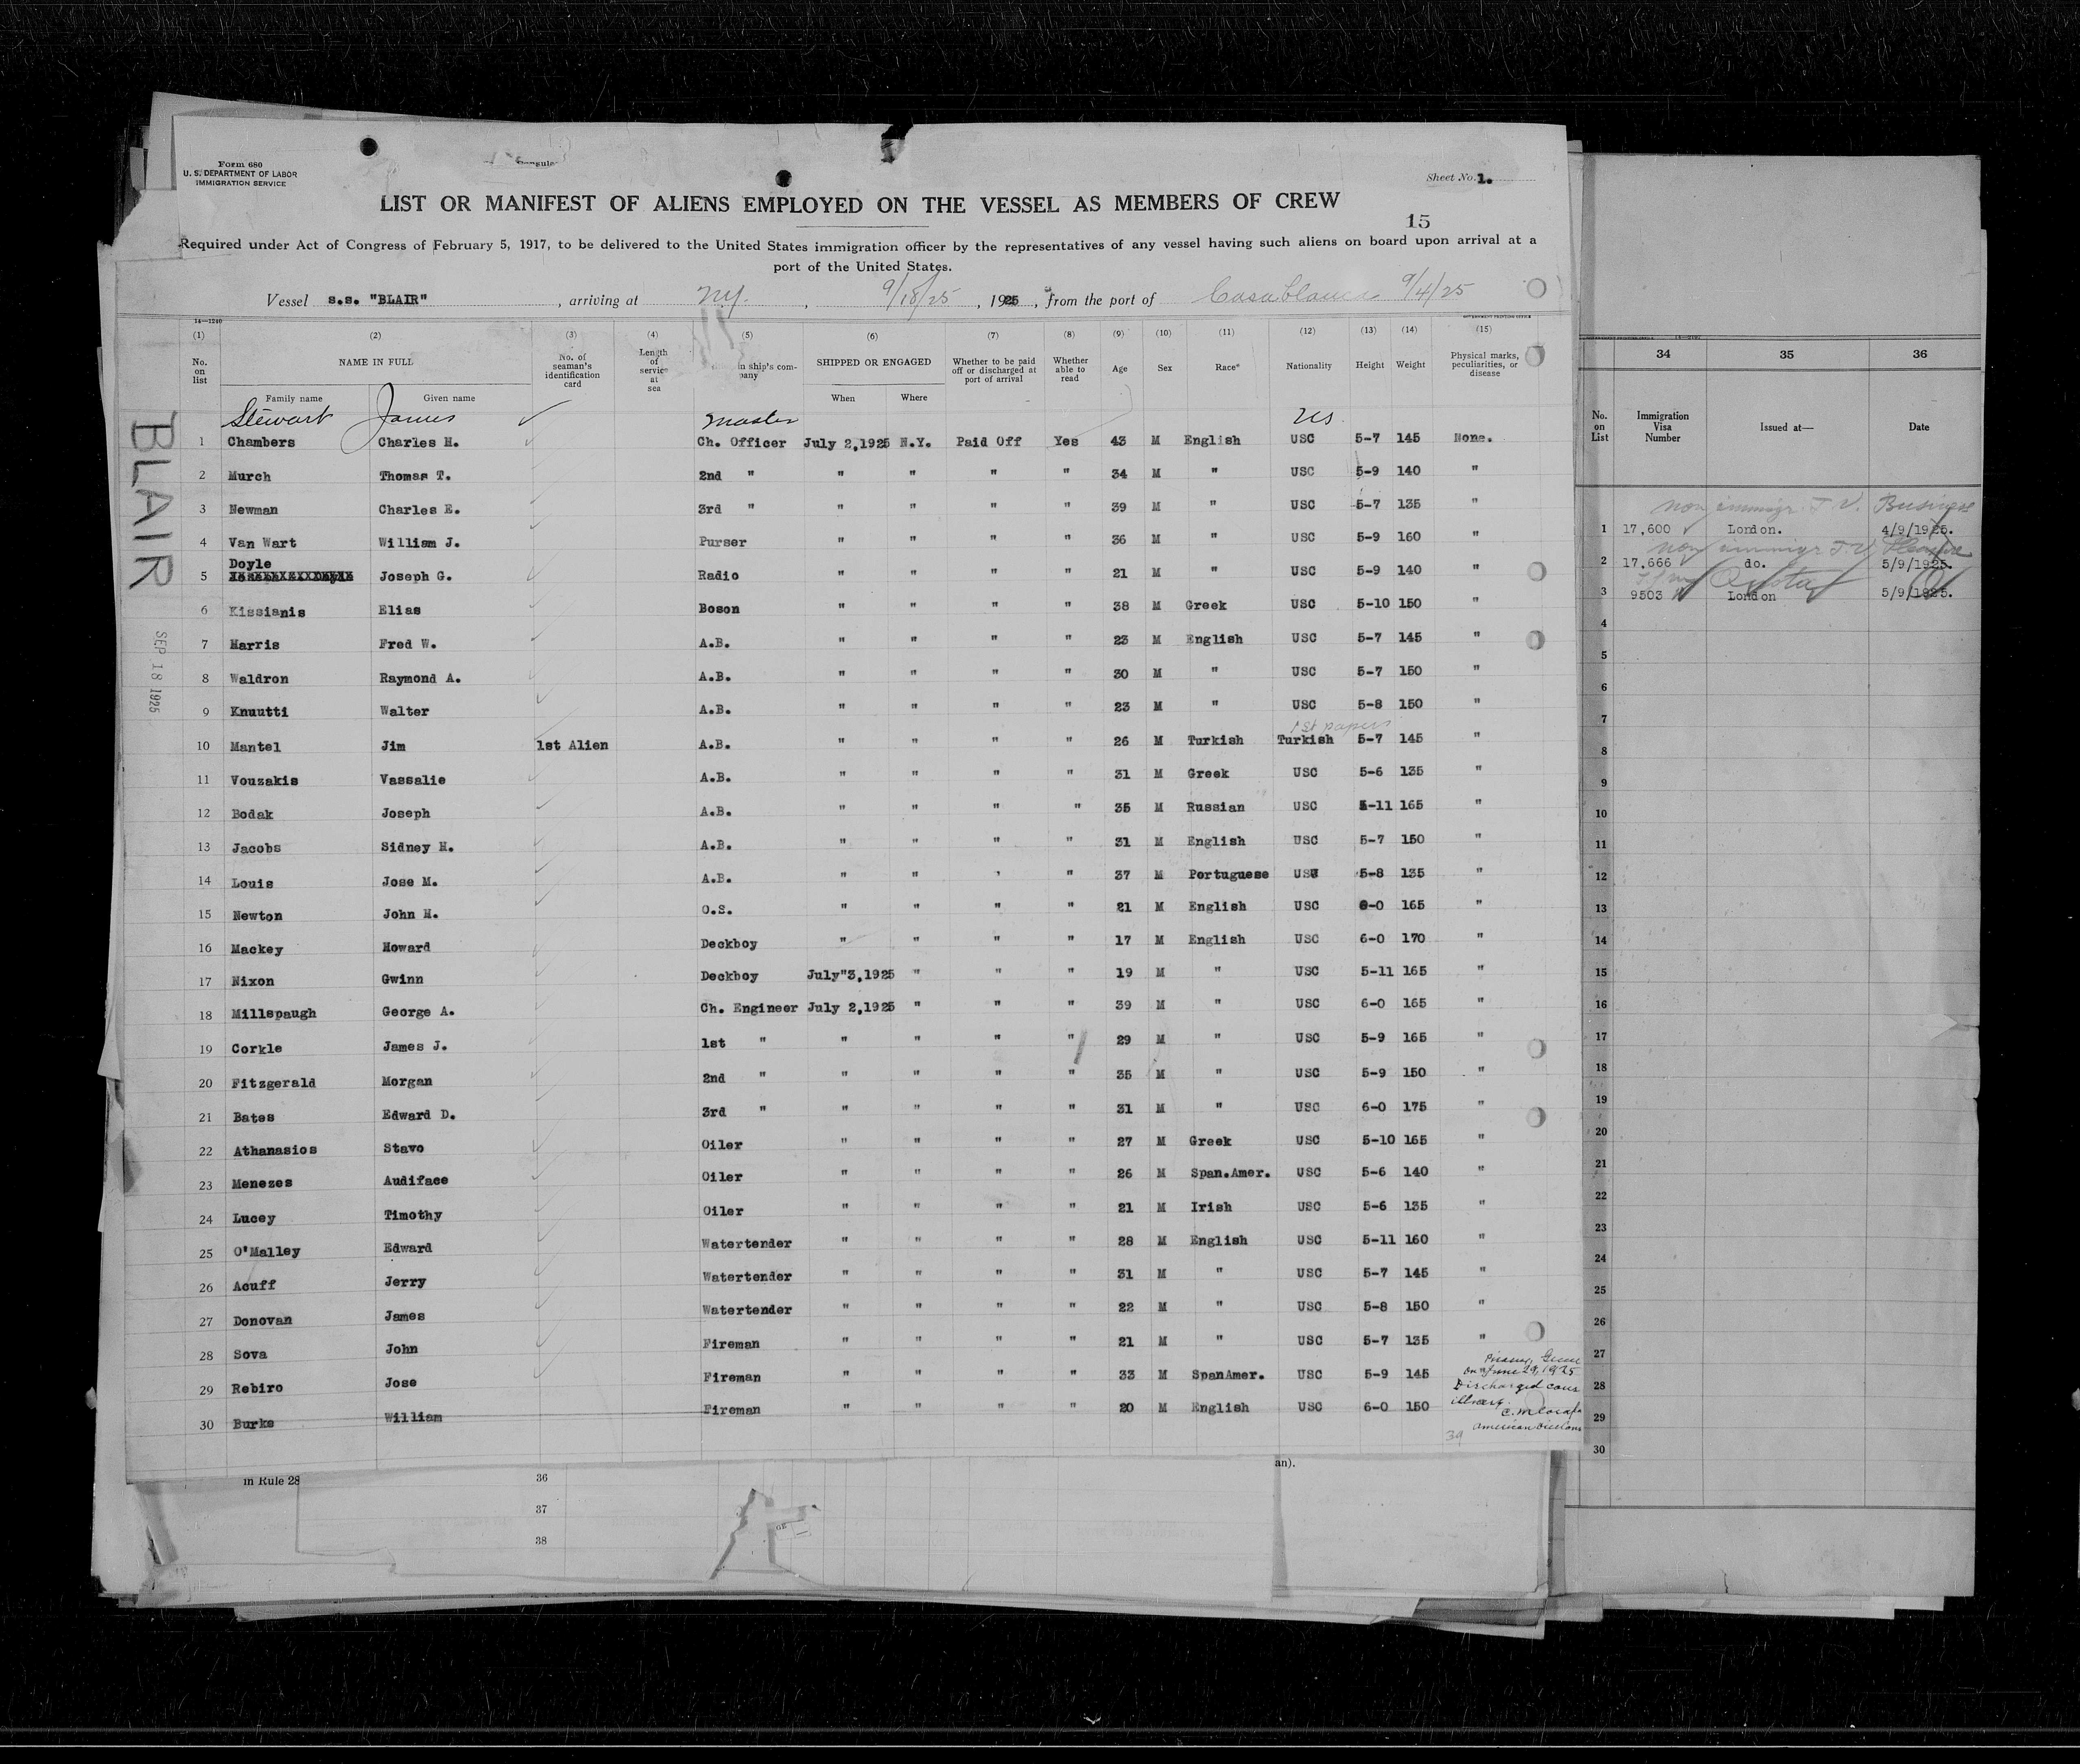 Form 680
U. S. DEPARTMENT OF LABOR
IMMIGRATION SERVICE
Consular
Sheet No. 1.
LIST OR MANIFEST OF ALIENS EMPLOYED ON THE VESSEL AS MEMBERS OF CREW
15
Required under Act of Congress of February 5, 1917, to be delivered to the United States immigration officer by the representatives of any vessel having such aliens on board upon arrival at a
port of the United States.
Vessel s.s. "BLAIR", arriving at N.Y., 9/18/25, 1925, from the port of Casablanca 9/4/25
14—1240
(1) (2) (3) (4) (5) (6) (7) (8) (9) (10) (11) (12) (13) (14) (15)
No. on list NAME IN FULL Family name Given name No. of seaman's identification card Length of service at sea in ship's company SHIPPED OR ENGAGED When Where Whether to be paid off or discharged at port of arrival Whether able to read Age Sex Race* Nationality Height Weight Physical marks, peculiarities, or disease
Stewart James Master US
1 Chambers Charles H. Ch. Officer July 2,1925 N.Y. Paid Off Yes 43 M English USC 5-7 145 None.
2 Murch Thomas T. 2nd " " " " " 34 M " USC 5-9 140 "
3 Newman Charles E. 3rd " " " " " 39 M " USC 5-7 135 "
4 Van Wart William J. Purser " " " " 36 M " USC 5-9 160 "
Doyle
5 Joseph G. Radio " " " " 21 M " USC 5-9 140 "
6 Kissianis Elias Boson " " " " 38 M Greek USC 5-10 150 "
7 Harris Fred W. A.B. " " " " 23 M English USC 5-7 145 "
8 Waldron Raymond A. A.B. " " " " 30 M " USC 5-7 150 "
9 Knuutti Walter A.B. " " " " 23 M " USC 5-8 150 "
1st papers
10 Mantel Jim 1st Alien A.B. " " " " 26 M Turkish Turkish 5-7 145 "
11 Vouzakis Vassalie A.B. " " " " 31 M Greek USC 5-6 135 "
12 Bodak Joseph A.B. " " " " 35 M Russian USC 5-11 165 "
13 Jacobs Sidney H. A.B. " " " " 31 M English USC 5-7 150 "
14 Louis Jose M. A.B. " " ' " 37 M Portuguese USW 5-8 135 "
15 Newton John H. O.S. " " " " 21 M English USC 6-0 165 "
16 Mackey Howard Deckboy " " " " 17 M English USC 6-0 170 "
17 Nixon Gwinn Deckboy July"3,1925 " " " 19 M " USC 5-11 165 "
18 Millspaugh George A. Ch. Engineer July 2,1925 " " " 39 M " USC 6-0 165 "
19 Corkle James J. 1st " " " " " 29 M " USC 5-9 165 "
20 Fitzgerald Morgan 2nd " " " " " 35 M " USC 5-9 150 "
21 Bates Edward D. 3rd " " " " " 31 M " USC 6-0 175 "
22 Athanasios Stavo Oiler " " " " 27 M Greek USC 5-10 165 "
23 Menezes Audiface Oiler " " " " 26 M Span.Amer. USC 5-6 140 "
24 Lucey Timothy Oiler " " " " 21 M Irish USC 5-6 135 "
25 O'Malley Edward Watertender " " " " 28 M English USC 5-11 160 "
26 Acuff Jerry Watertender " " " " 31 M " USC 5-7 145 "
27 Donovan James Watertender " " " " 22 M " USC 5-8 150 "
28 Sova John Fireman " " " " 21 M " USC 5-7 135 "
29 Rebiro Jose Fireman " " " " 33 M SpanAmer. USC 5-9 145
30 Burke William Fireman " " " " 20 M English USC 6-0 150
Piraeus, Greece
on June 29, 1925
Discharged
illness.
American
39
BLAIR
SEP 18 1925
34 35 36
No. on List Immigration Visa Number Issued at— Date
non immigr T.V. Business
1 17,600 London. 4/9/1925.
non immigr T.V. Pleasure
2 17,666 do. 5/9/1925.
Quota
3 9503 London 5/9/1925.
4
5
6
7
8
9
10
11
12
13
14
15
16
17
18
19
20
21
22
23
24
25
26
27
28
29
30
in Rule 28
36
37
38
an).